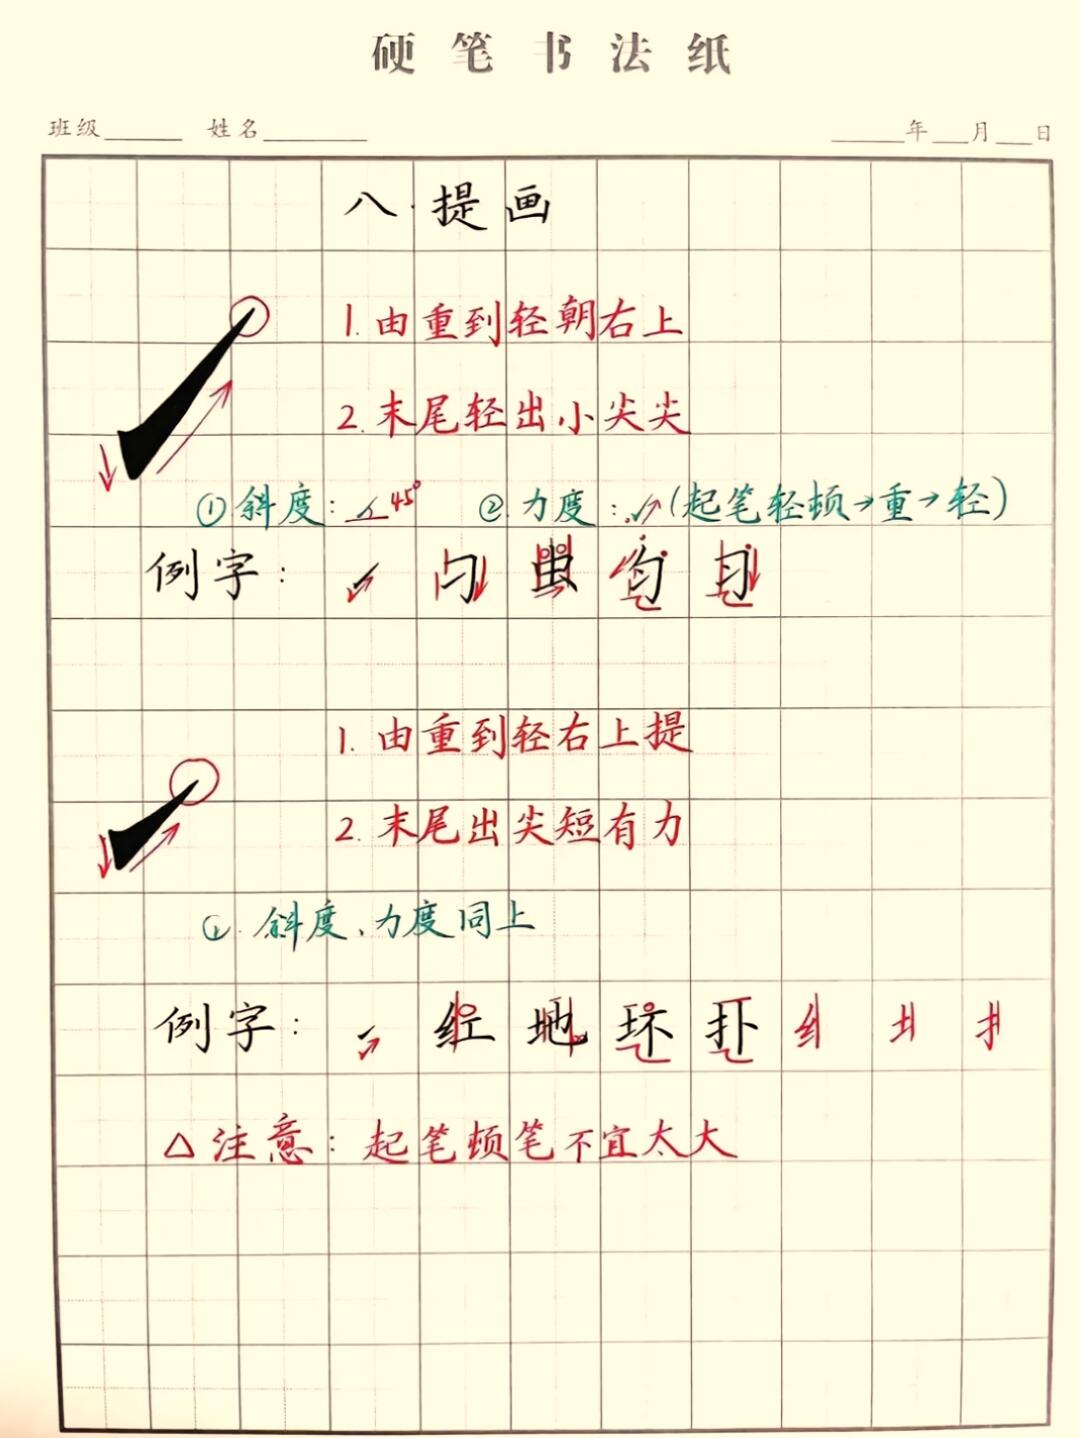 硬笔书法纸
班级______ 姓名________ ______年___月___日
八.提画
1.由重到轻朝右上
2.末尾轻出小尖尖
①斜度:45° ②力度:(起笔轻顿→重→轻)
例字: 习 虫 匀
1.由重到轻右上提
2.末尾出尖短有力
斜度、力度同上
例字: 红 地 环 扑 纟 土 扌
△注意:起笔顿笔不宜太大